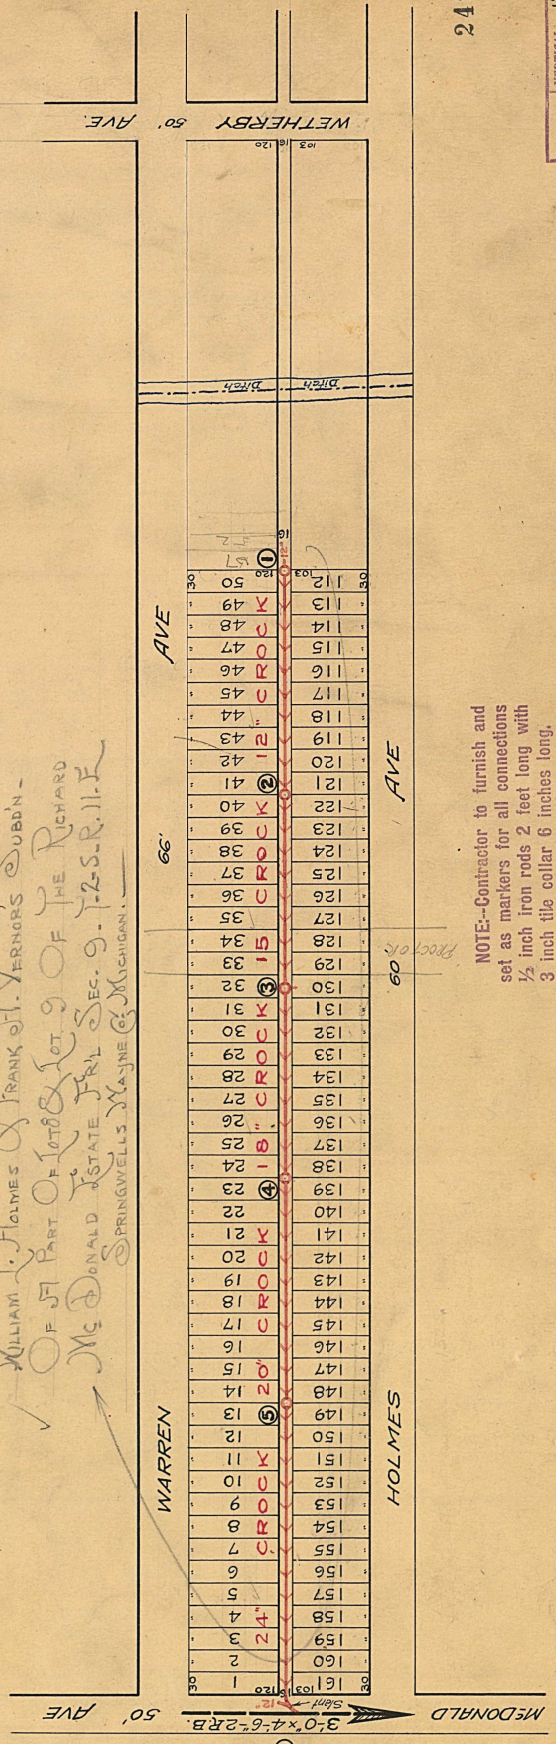 WILLIAM L. HOLMES & FRANK A. VERNORS SUBD'N
OF A PART OF LOT 8 & LOT 9 OF THE RICHARD
McDONALD ESTATE FR'L SEC. 9-T-2-S-R.11.E
SPRINGWELLS WAYNE Co. MICHIGAN.
24
WETHERBY 50' AVE.
120 16 103
Ditch Ditch
WARREN 66' AVE
HOLMES 60 AVE
PROCTOR
McDONALD 50' AVE
3'-0"x4'-6"-2R.B.
Silent
12"
24" CROCK
20" CROCK
18" CROCK
15 CROCK
12" CROCK
12"
① ② ③ ④ ⑤
16
57
52
30 120 103 30
1 2 3 4 5 6 7 8 9 10 11 12 13 14 15 16 17 18 19 20 21 22 23 24 25 26 27 28 29 30 31 32 33 34 35 36 37 38 39 40 41 42 43 44 45 46 47 48 49 50
161 160 159 158 157 156 155 154 153 152 151 150 149 148 147 146 145 144 143 142 141 140 139 138 137 136 135 134 133 132 131 130 129 128 127 126 125 124 123 122 121 120 119 118 117 116 115 114 113 112
30 120 103 30
NOTE:--Contractor to furnish and
set as markers for all connections
½ inch iron rods 2 feet long with
3 inch tile collar 6 inches long.